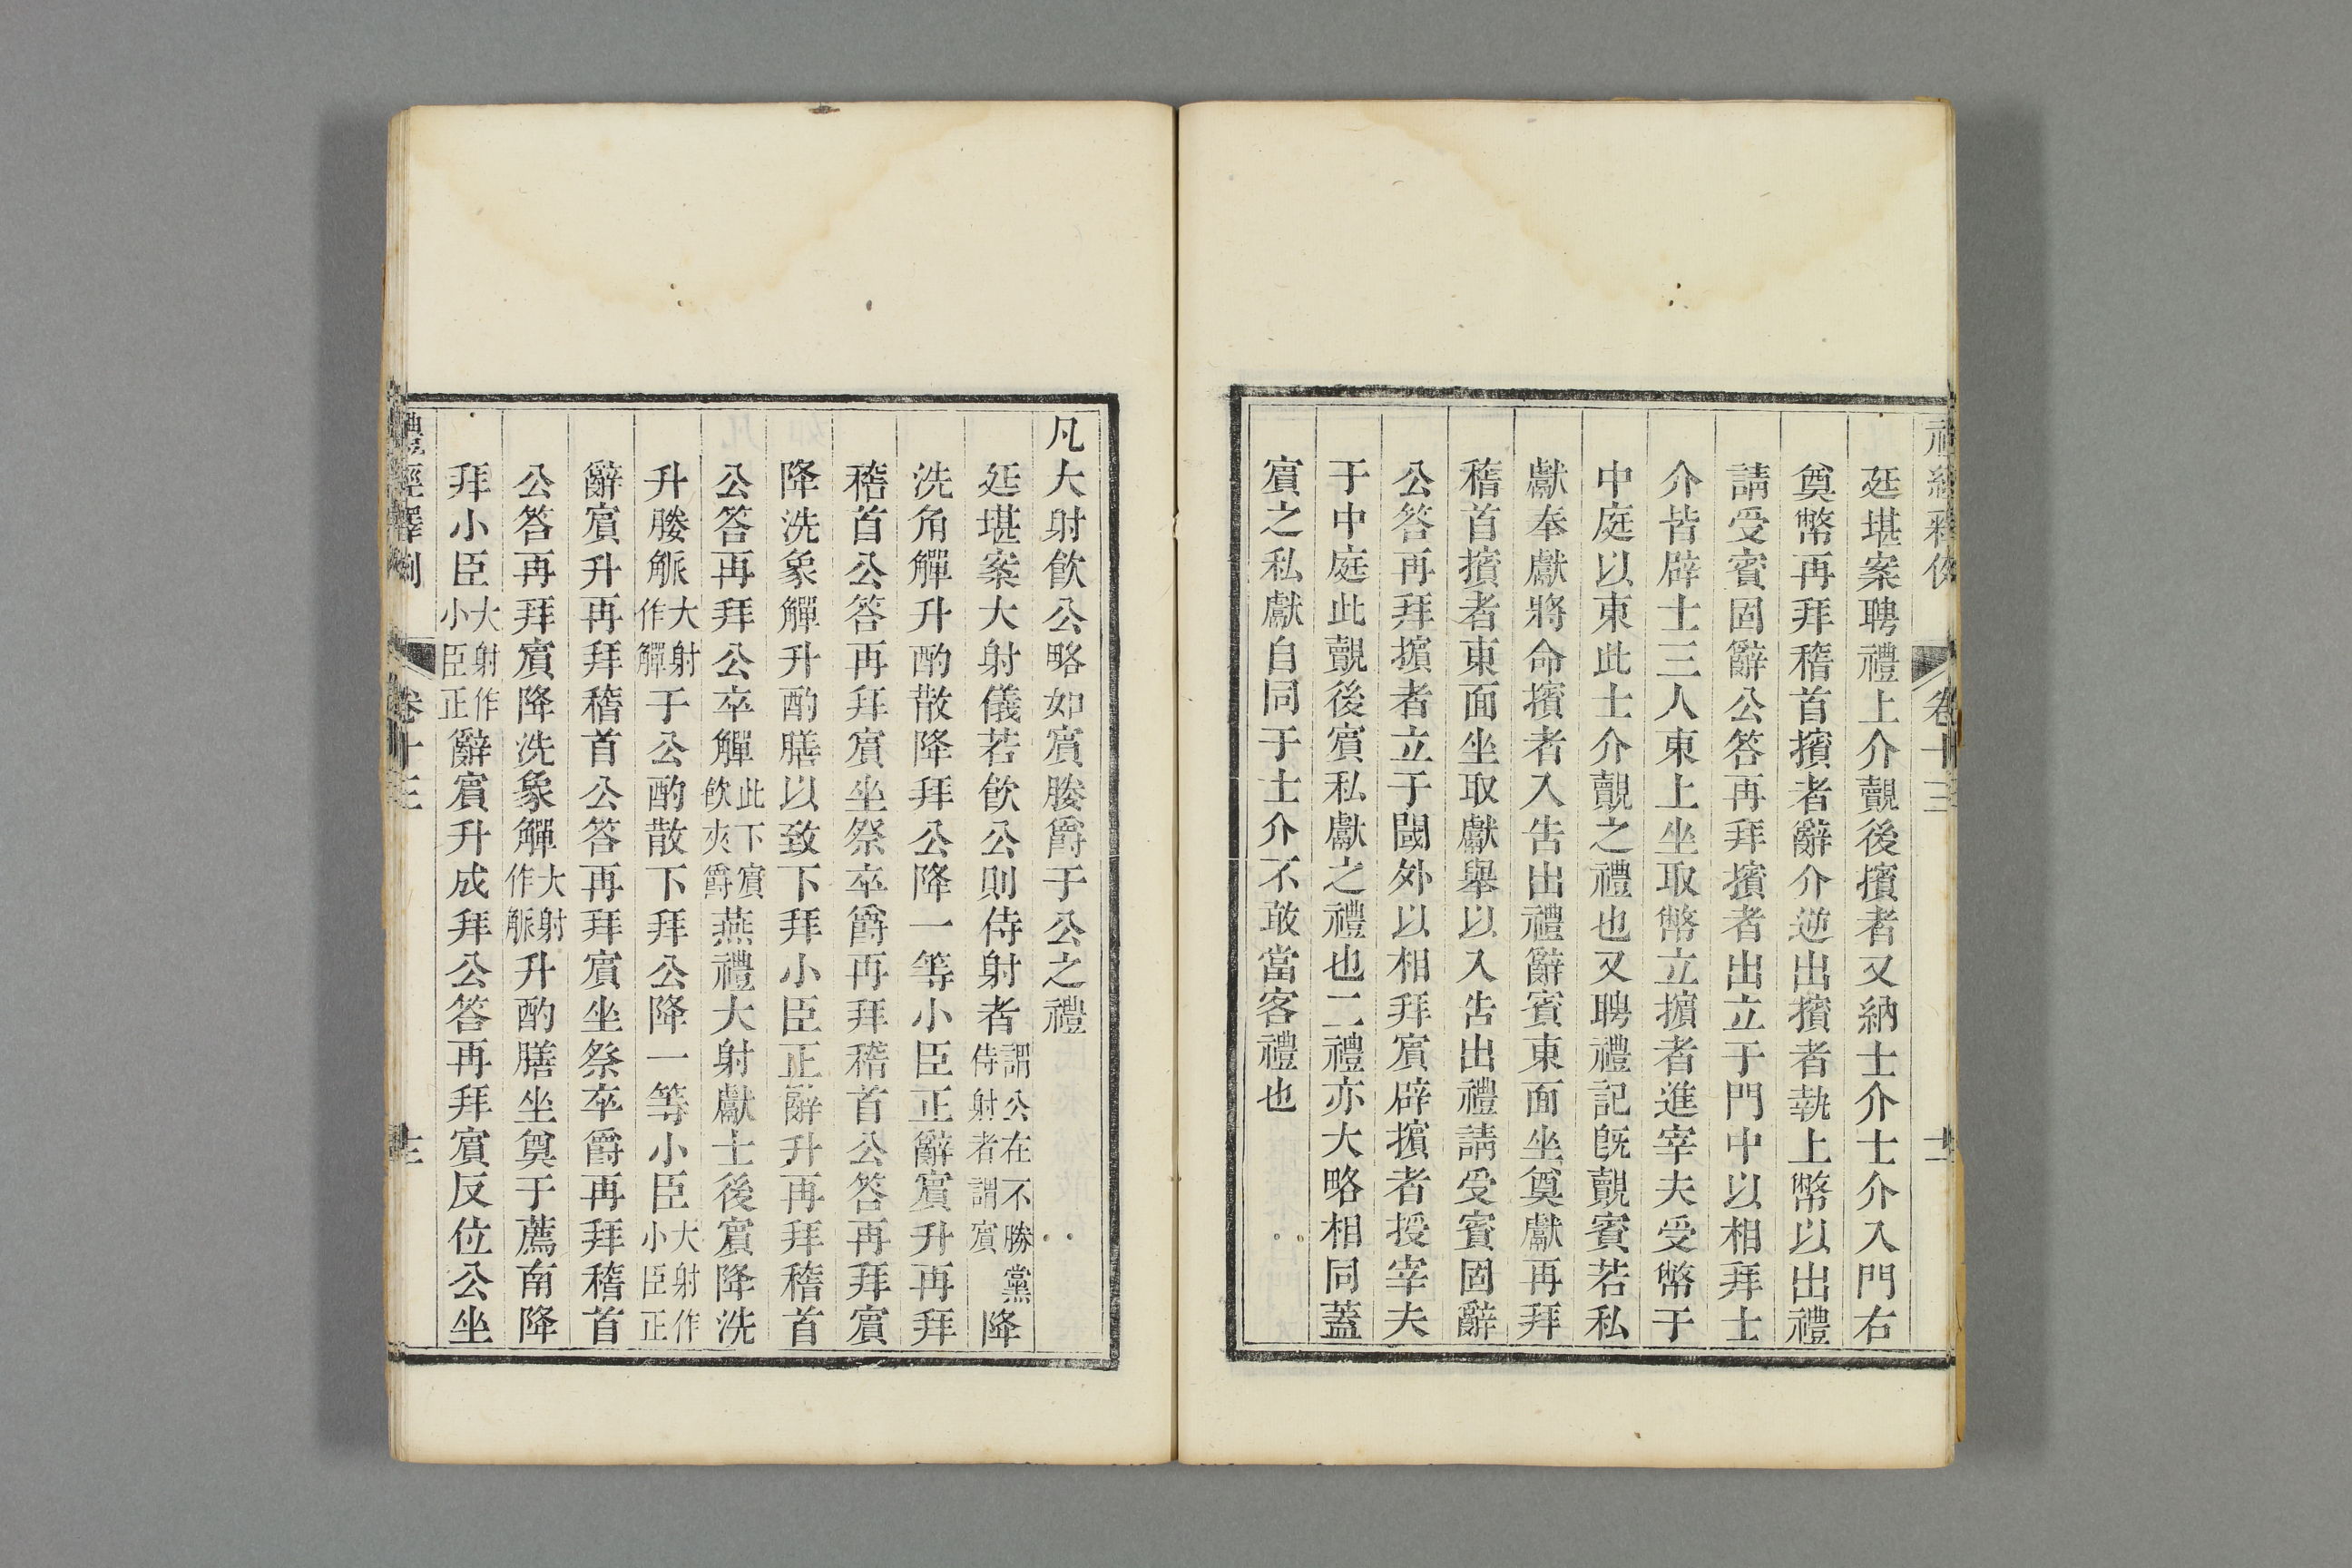 廷堪案聘禮上介覿後擯者又納士介士介入門右
奠幣再拜稽首擯者辭介逆出擯者執上幣以出禮
請受賓固辭公答再拜擯者出立于門中以相拜士
介皆辟士三人東上坐取幣立擯者進宰夫受幣于
中庭以東此士介覿之禮也又聘禮記旣覿賓若私
獻奉獻將命擯者入告出禮辭賓東面坐奠獻再拜
稽首擯者東面坐取獻舉以入告出禮請受賓固辭
公答再拜擯者立于閾外以相拜賓辟擯者授宰夫
于中庭此覿後賓私獻之禮也二禮亦大略相同蓋
賓之私獻自同于士介不敢當客禮也
凡大射飮公略如賓媵爵于公之禮
廷堪案大射儀若飮公則侍射者謂公在不勝黨侍射者謂賓降
洗角觶升酌散降拜公降一等小臣正辭賓升再拜
稽首公答再拜賓坐祭卒爵再拜稽首公答再拜賓
降洗象觶升酌膳以致下拜小臣正辭升再拜稽首
公答再拜公卒觶此下賓飮夾爵燕禮大射獻士後賓降洗
升媵觚大射作觶于公酌散下拜公降一等小臣大射作小臣正
辭賓升再拜稽首公答再拜賓坐祭卒爵再拜稽首
公答再拜賓降洗象觶大射作觚升酌膳坐奠于薦南降
拜小臣大射作小臣正辭賓升成拜公答再拜賓反位公坐
卷十三